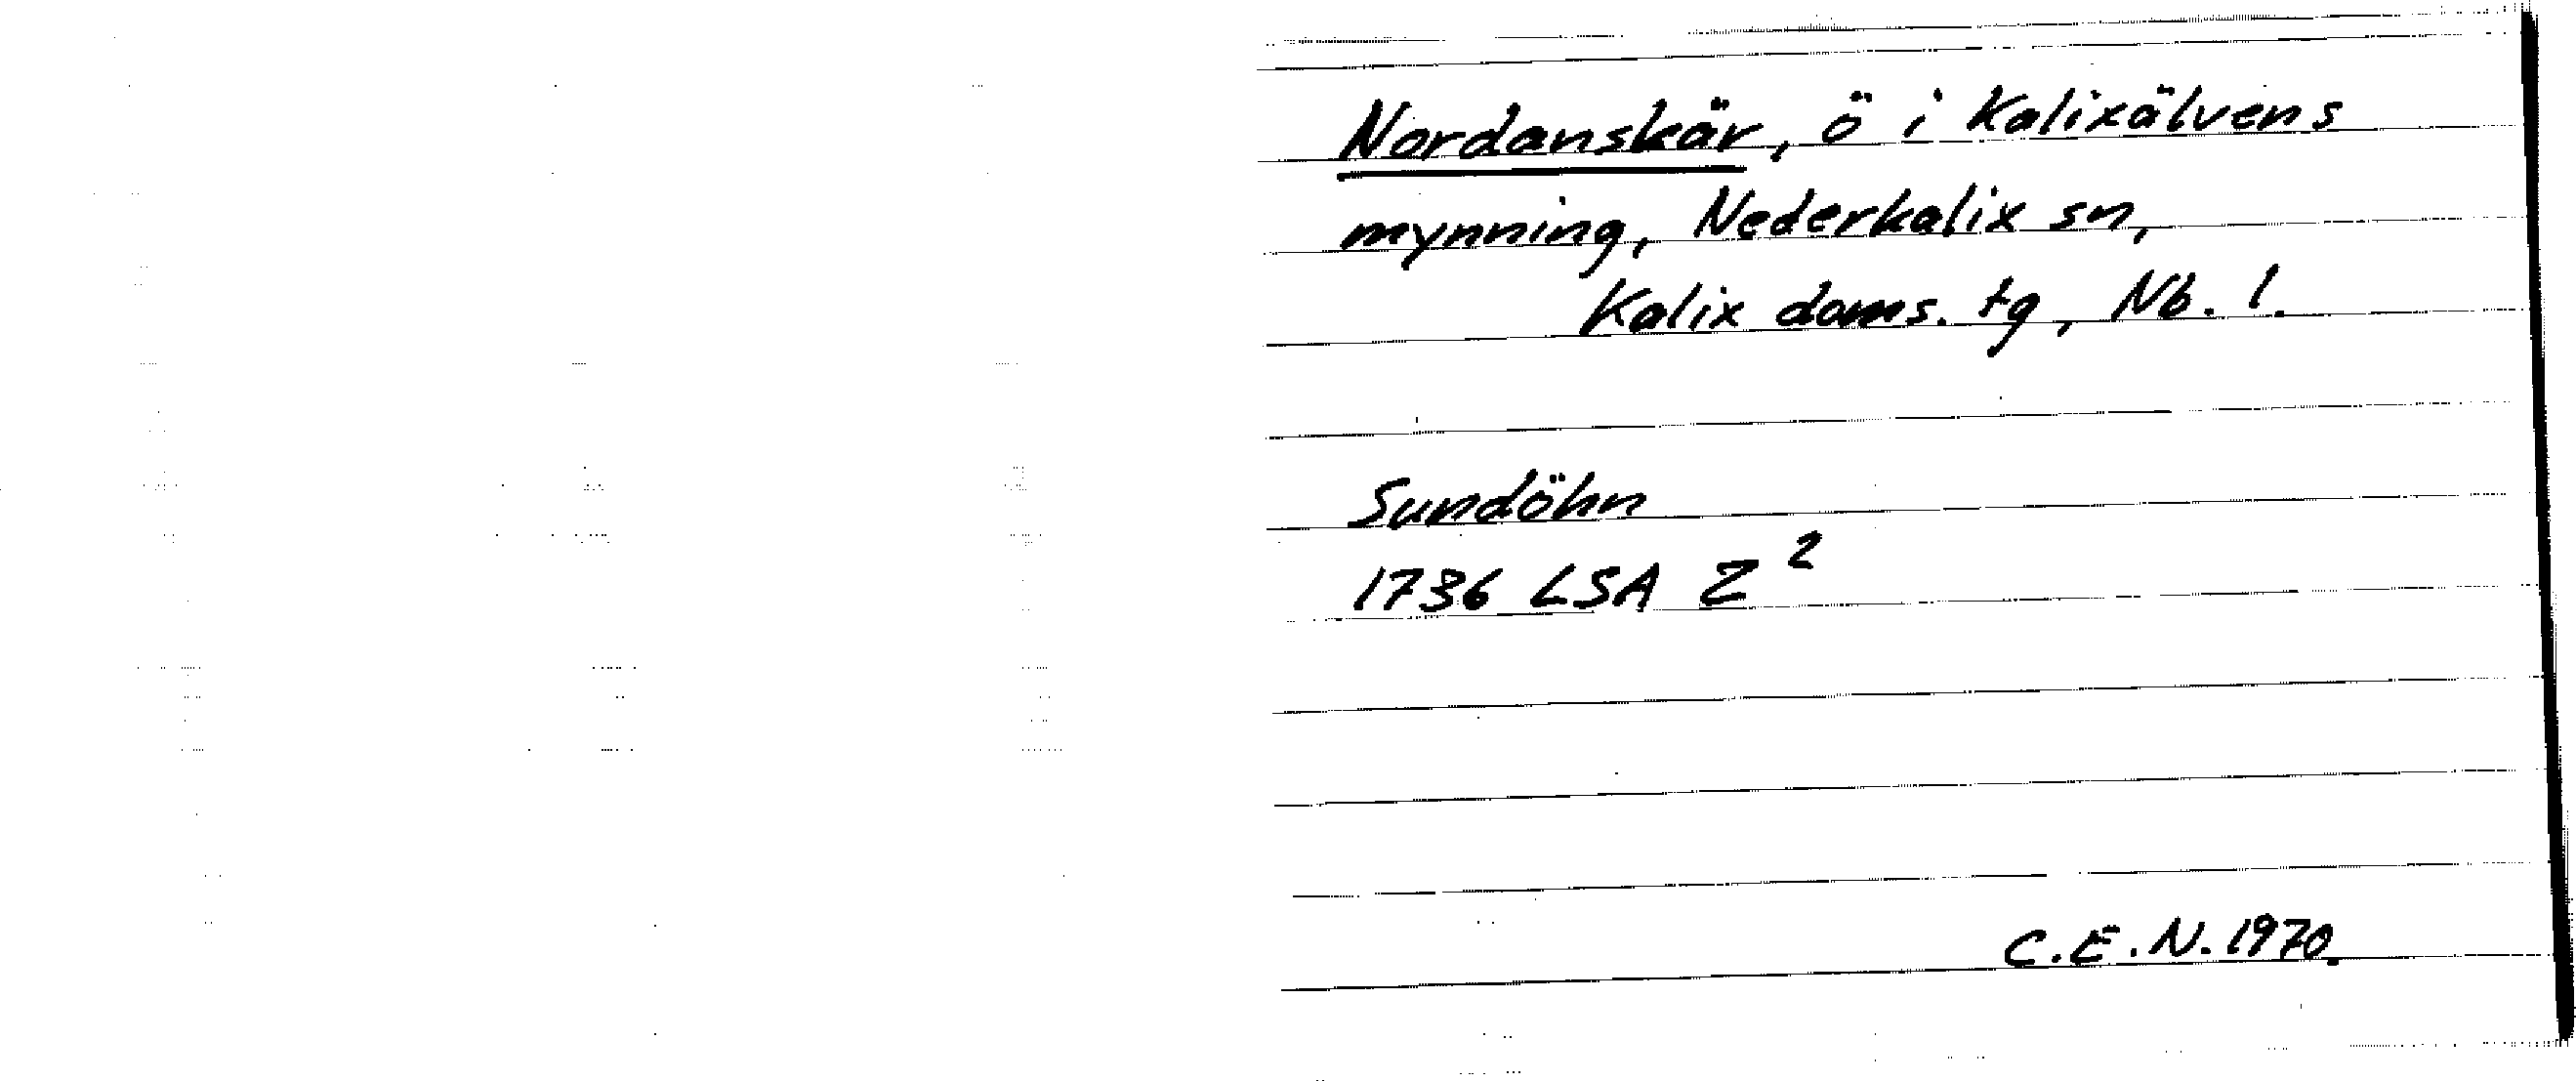 Nordanskär, ö i Kalixälvens
mynning, Nederkalix sn,
Kalix doms. tg, Nb. l.
Sundöhn
1736 LSA Z 2
C.E.N. 1970.